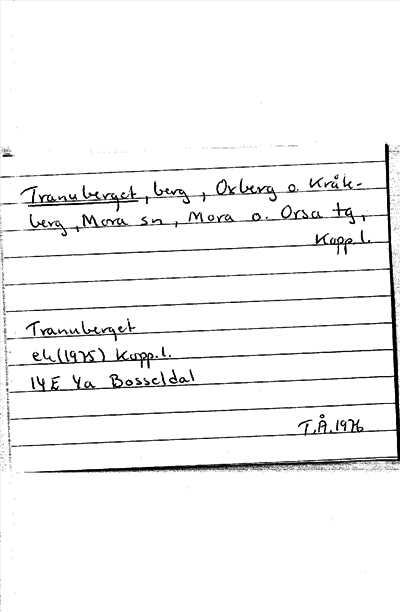 Tranuberget, berg, Oxberg o. Kråk-
berg, Mora sn, Mora o. Orsa tg,
Kopp.l.
Tranuberget
ek (1975) Kopp.l.
14E 4a Bosseldal
T.Å. 1976